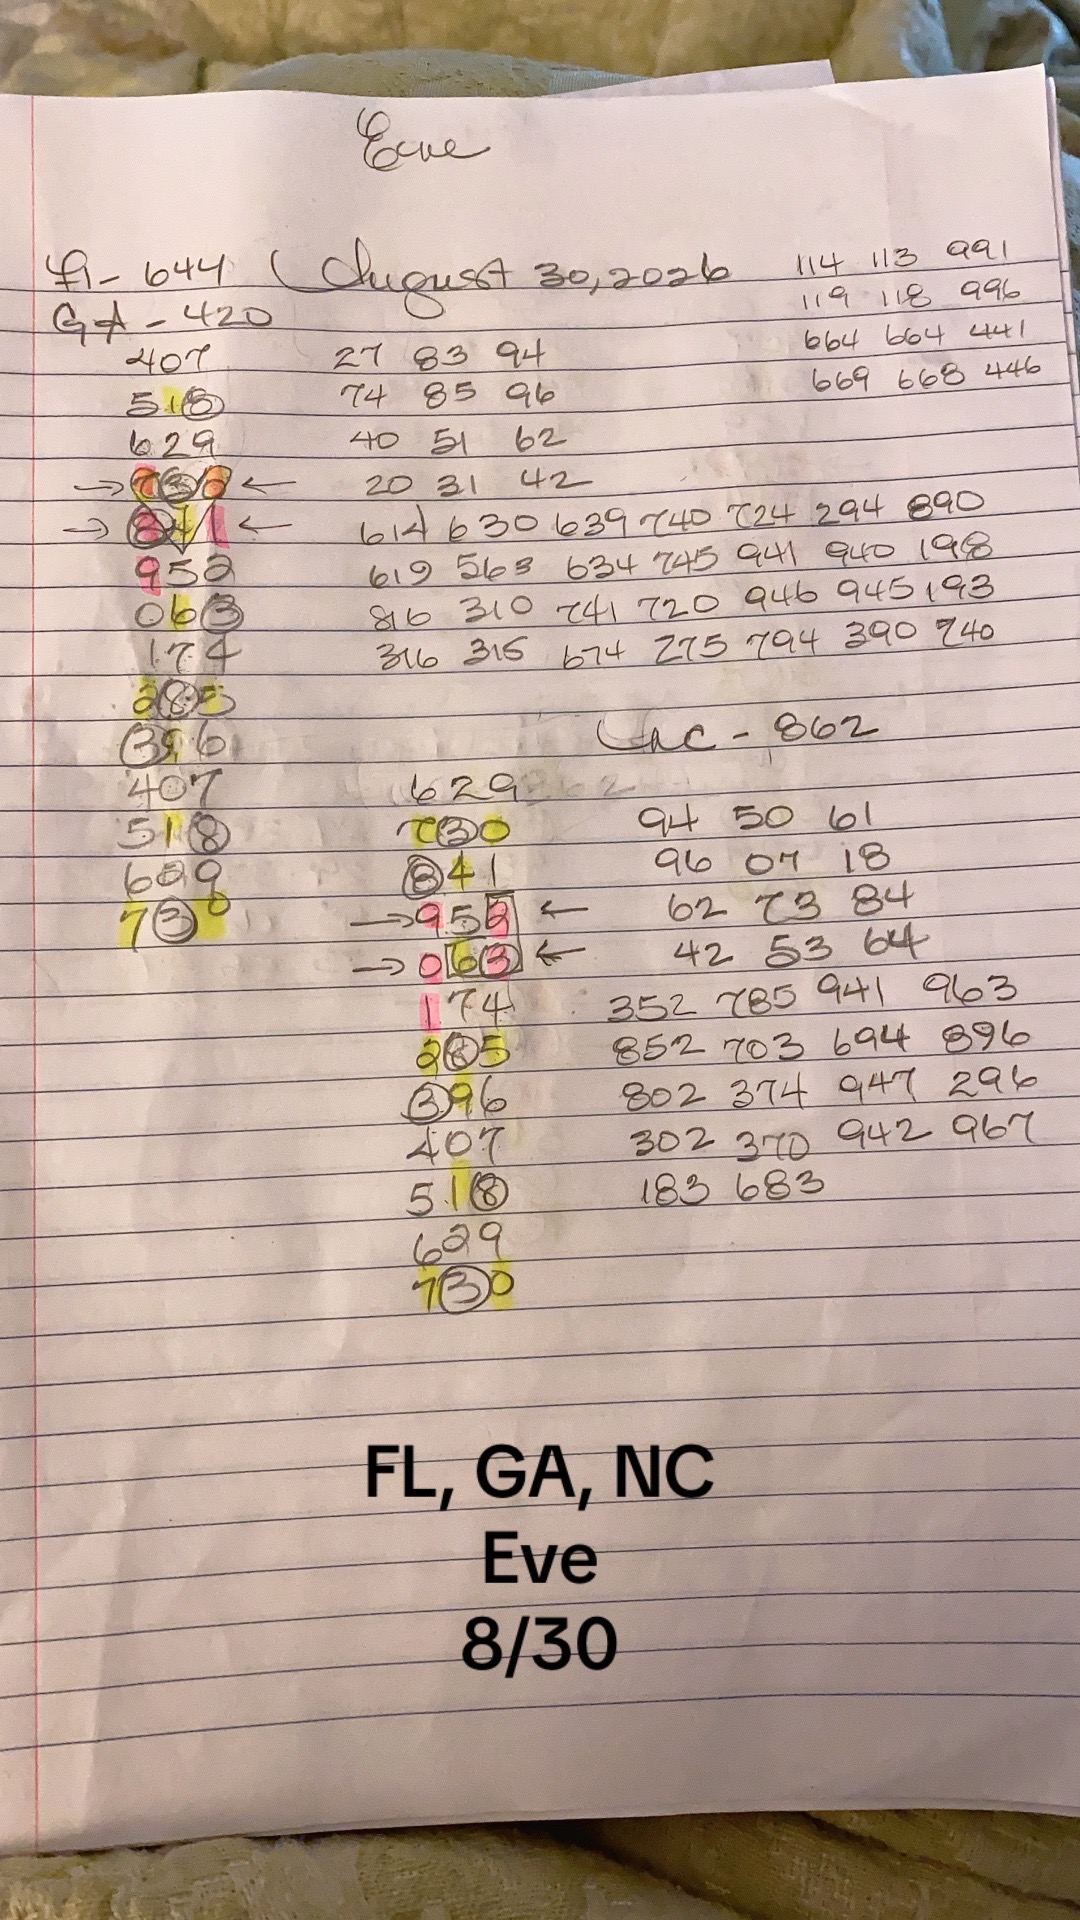 Eve
Fl- 644 August 30, 2026 114 113 991
GA - 420 119 118 996
664 664 441
407 27 83 94 669 668 446
518 74 85 96
629 40 51 62
→ 730 ← 20 31 42
→ 841 ← 614 630 639 740 724 294 890
952 619 563 634 745 941 940 198
063 816 310 741 720 946 945 193
174 316 315 674 275 794 390 240
285
396 NC - 862
407 629
518 730 94 50 61
629 841 96 07 18
730 → 952 ← 62 73 84
→ 063 ← 42 53 64
174 352 785 941 963
285 852 703 694 896
396 802 374 947 296
407 302 370 942 967
518 183 683
629
730
FL, GA, NC
Eve
8/30